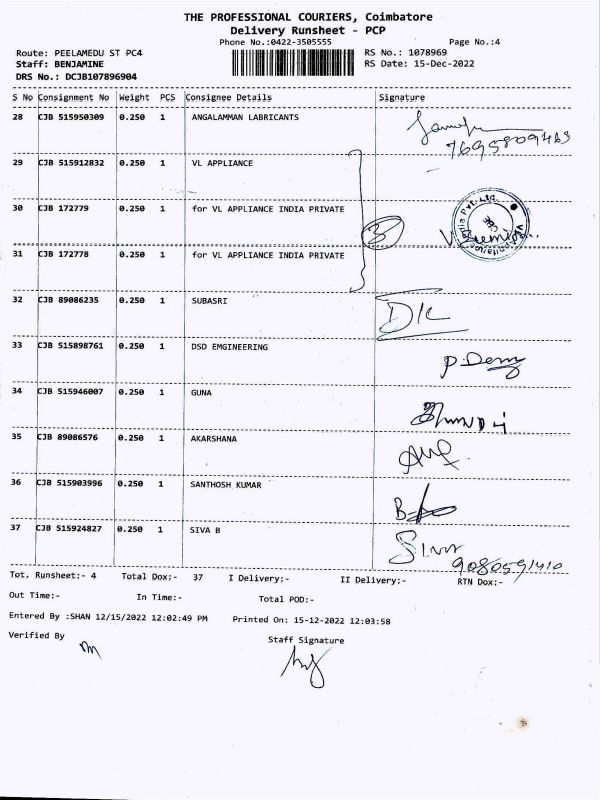 THE PROFESSIONAL COURIERS, Coimbatore
Delivery Runsheet - PCP
Phone No.:0422-3505555 Page No.:4
Route: PEELAMEDU ST PC4 RS No.: 1078969
Staff: BENJAMINE RS Date: 15-Dec-2022
DRS No.: DCJB107896904
S No Consignment No Weight PCS Consignee Details Signature
28 CJB 515950309 0.250 1 ANGALAMMAN LABRICANTS
7695809463
29 CJB 515912832 0.250 1 VL APPLIANCE
30 CJB 172779 0.250 1 for VL APPLIANCE INDIA PRIVATE
3
31 CJB 172778 0.250 1 for VL APPLIANCE INDIA PRIVATE
32 CJB 89086235 0.250 1 SUBASRI
33 CJB 515898761 0.250 1 DSD EMGINEERING
34 CJB 515946007 0.250 1 GUNA
35 CJB 89086576 0.250 1 AKARSHANA
36 CJB 515903996 0.250 1 SANTHOSH KUMAR
37 CJB 515924827 0.250 1 SIVA B
9080591410
Tot. Runsheet:- 4 Total Dox:- 37 I Delivery:- II Delivery:- RTN Dox:-
Out Time:- In Time:- Total POD:-
Entered By :SHAN 12/15/2022 12:02:49 PM Printed On: 15-12-2022 12:03:58
Verified By Staff Signature